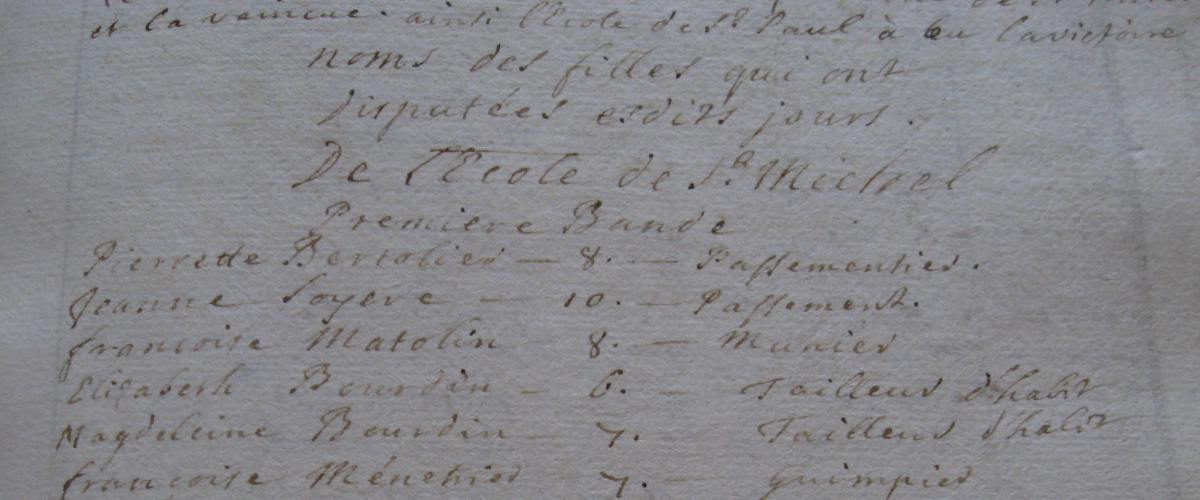 et la vaincue. ainsi l'Ecole de St Paul à eu la victoire
noms des filles qui ont
disputées esdits jours.
De l'Ecole de St Michel
Premiere Bande
Pierrette Bertolier — 8. — Passementier.
Jeanne Soyere — 10. — Passement.
francoise Matolin 8. — Munier
Elizabeth Bourdin — 6. — Tailleur d'habit
Magdeleine Bourdin — 7. Tailleur d'habit
francoise Ménétrier 7. Guimpier